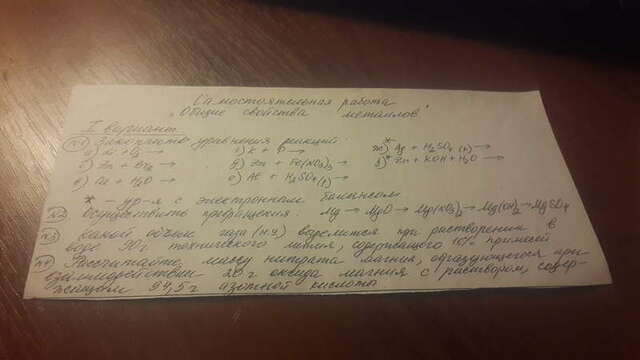 Самостоятельная работа
"Общие свойства металлов"
I вариант
№1 Закончите уравнения реакций:
а) Al + O₂ → г) K + P → ж)* Ag + H₂SO₄ (к) →
б) Zn + Br₂ → д) Zn + Fe(NO₃)₂ → з)* Zn + KOH + H₂O →
в) + H₂O → е) Al + H₂SO₄(р) →
* - ур-я с электронным балансом
№2 Осуществить превращения: Mg → MgO → Mg(NO₃)₂ → Mg(OH)₂ → MgSO₄
№3 Какой объём газа (н.у.) выделится при растворении в
воде 90г технического лития, содержащего 10% примесей
№4 Рассчитайте массу нитрата магния, образующегося при
взаимодействии 20г оксида магния с раствором, содер-
жащим 94,5г азотной кислоты